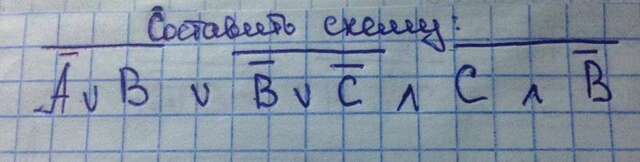 Составить схему:
A̅ ∨ B ∨ B̅ ∨ C̅ ∧ C ∧ B̅